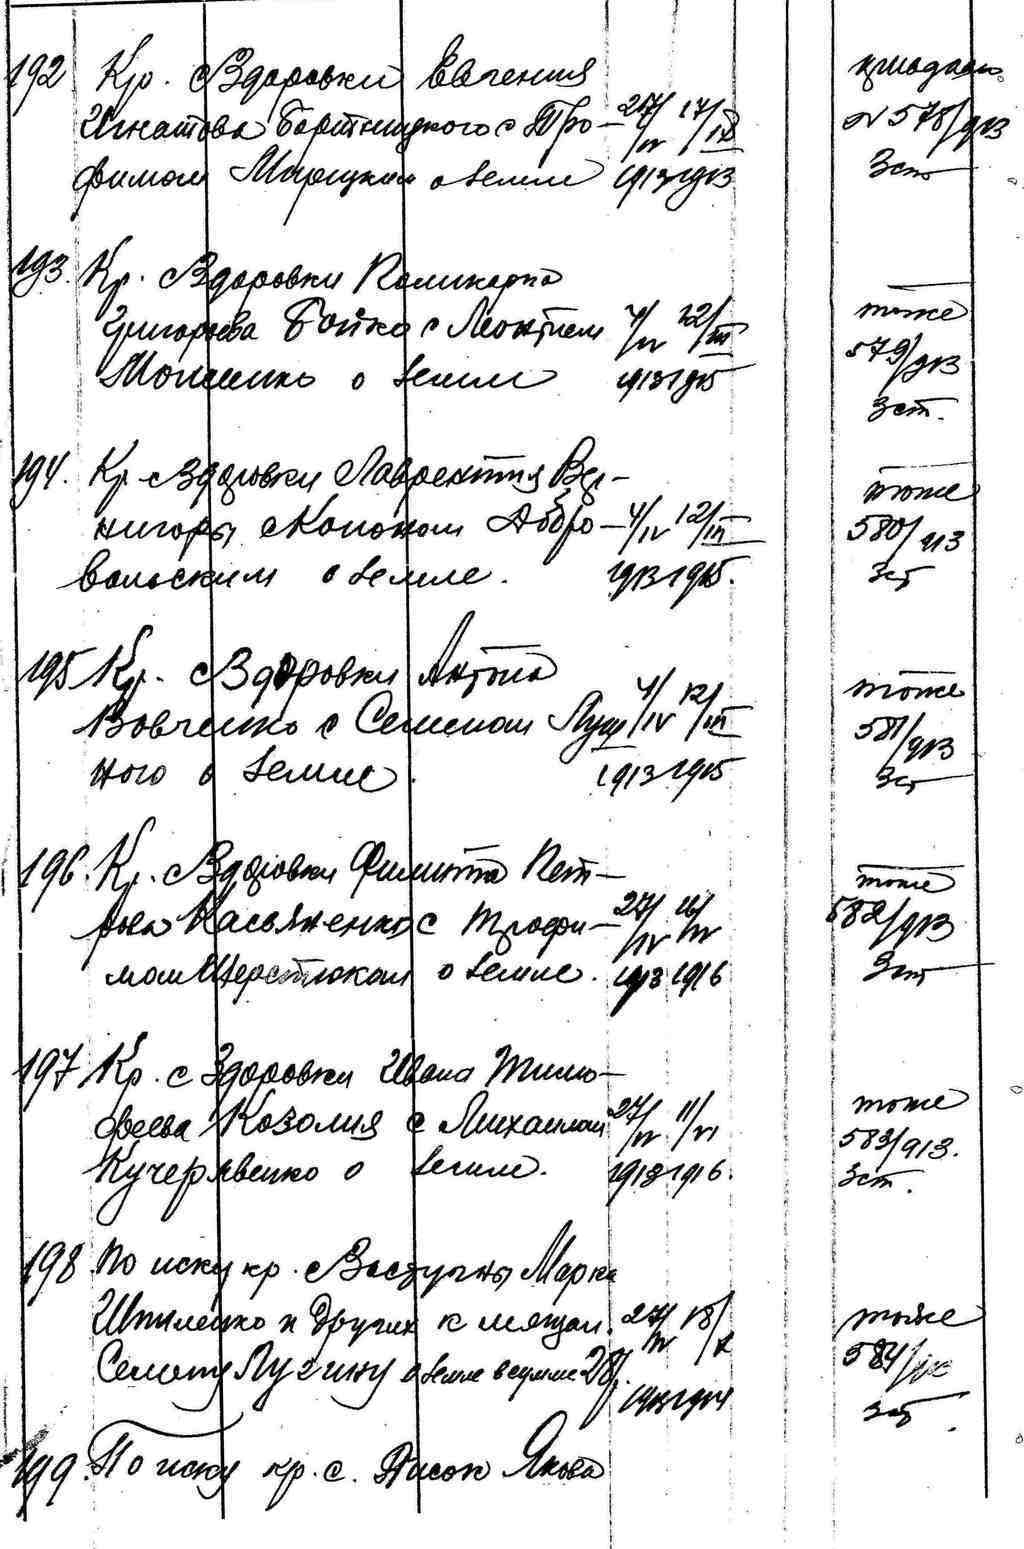 192 Кр. с Здоровки Евгения
Игнатова Бортницкого с Тро- 27/IV 17/IX
фимом о земле 1913 1913
№ 578/913
3 ст
193. Кр. с Здоровки Поликарпа
Григорьева Бойко с Леонтием 4/IV 12/III
Моисеенко о земле 1913 1915
тоже
579/913
3 ст.
194. Кр. с Здоровки Лаврентия Вер-
нигоры с Кононом Добро- 4/IV 12/III
вольским о земле. 1913 1915.
тоже
580/913
3 ст
195 Кр. с Здоровки Антона
Вовченко с Семеном 4/IV 12/III
ного о земле. 1913 1915
тоже
581/913
3 ст
196. Кр. с Здоровки Филиппа Пет-
рова Касьяненко с Трофи- 27/IV 16/IV
мом Шерстюком о земле. 1913 1916
тоже
582/913
3 ст
197 Кр. с Здоровки Ивана Тимо-
феева Козолия с Михаилом 27/IV 11/VI
Кучерявенко о земле. 1913 1916.
тоже
583/913.
3 ст.
198 По иску кр. с Марка
Шпиленко и других к мещан. 27/IV 18/X
Семену Лугину о земле в сумме 28 р. 1913 1914
тоже
584/913
3 ст
199. По иску кр. с. Якова